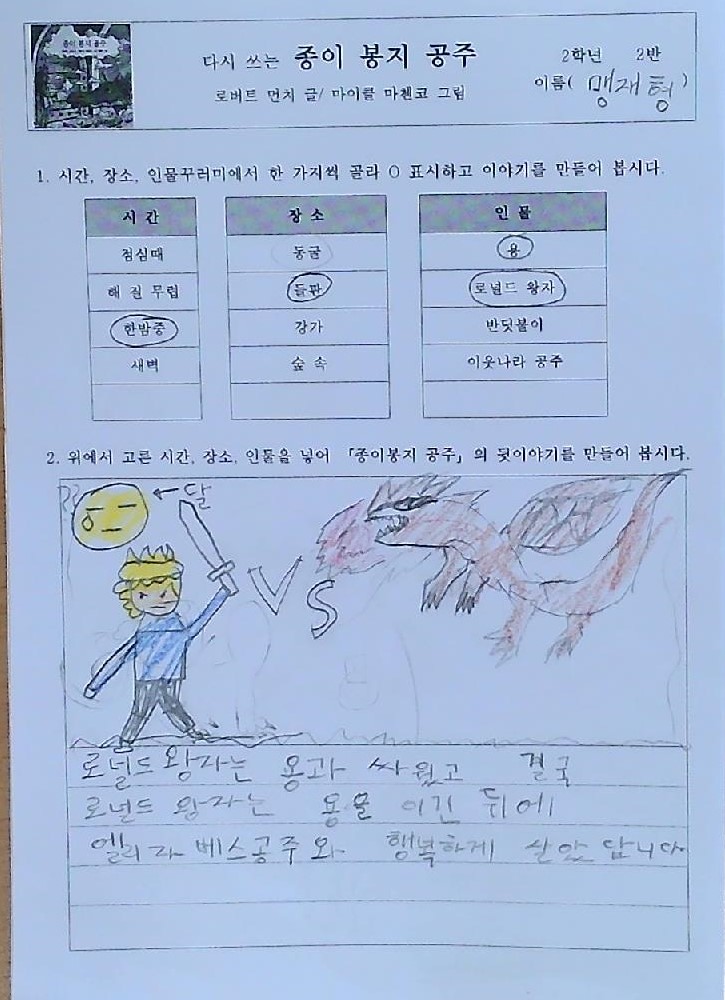 종이 봉지 공주
다시 쓰는 종이 봉지 공주
로버트 먼치 글/ 마이클 마첸코 그림
2학년 2반
이름( 맹재형 )
1. 시간, 장소, 인물꾸러미에서 한 가지씩 골라 O 표시하고 이야기를 만들어 봅시다.
시간 장소 인물
점심때 동굴 용
해 질 무렵 들판 로널드 왕자
한밤중 강가 반딧불이
새벽 숲 속 이웃나라 공주
2. 위에서 고른 시간, 장소, 인물을 넣어 「종이봉지 공주」의 뒷이야기를 만들어 봅시다.
←달
VS
로널드 왕자는 용과 싸웠고 결국
로널드 왕자는 용을 이긴 뒤에
엘리자베스공주와 행복하게 살았답니다.